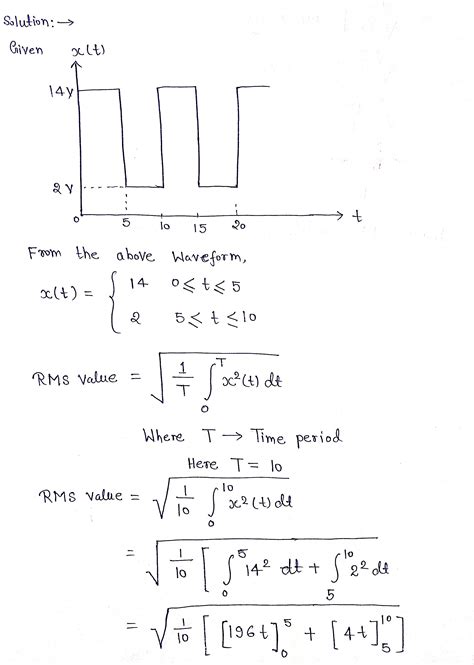 Solution:→
Given x(t)
14V
2V
0 5 10 15 20 t
From the above Waveform,
x(t) = { 14 0≤t≤5
2 5≤t≤10
RMS value = √(1/T ∫₀ᵀ x²(t) dt)
Where T → Time period
Here T = 10
RMS value = √(1/10 ∫₀¹⁰ x²(t) dt)
= √(1/10 [ ∫₀⁵ 14² dt + ∫₅¹⁰ 2² dt
= √(1/10 [ [196t]₀⁵ + [4t]₅¹⁰ ]